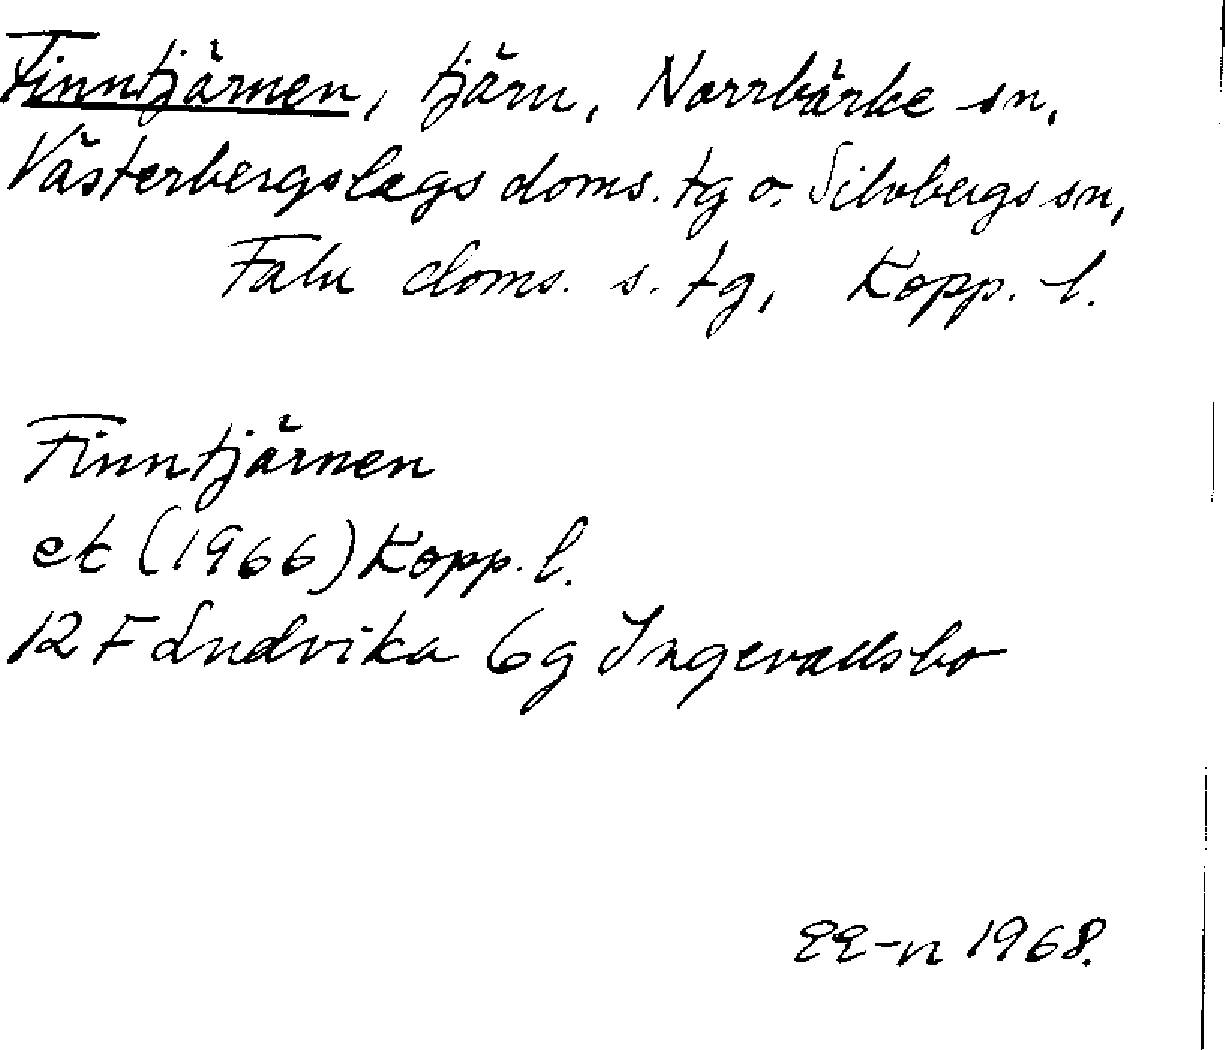 Finntjärnen, tjärn, Norrbärke sn,
Västerbergslags doms. tg o. Silvbergs sn,
Falu doms. s. tg, Kopp. l.
Finntjärnen
ek (1966) Kopp. l.
12 F Ludvika 6g Ingevallsbo
EE-n 1968.